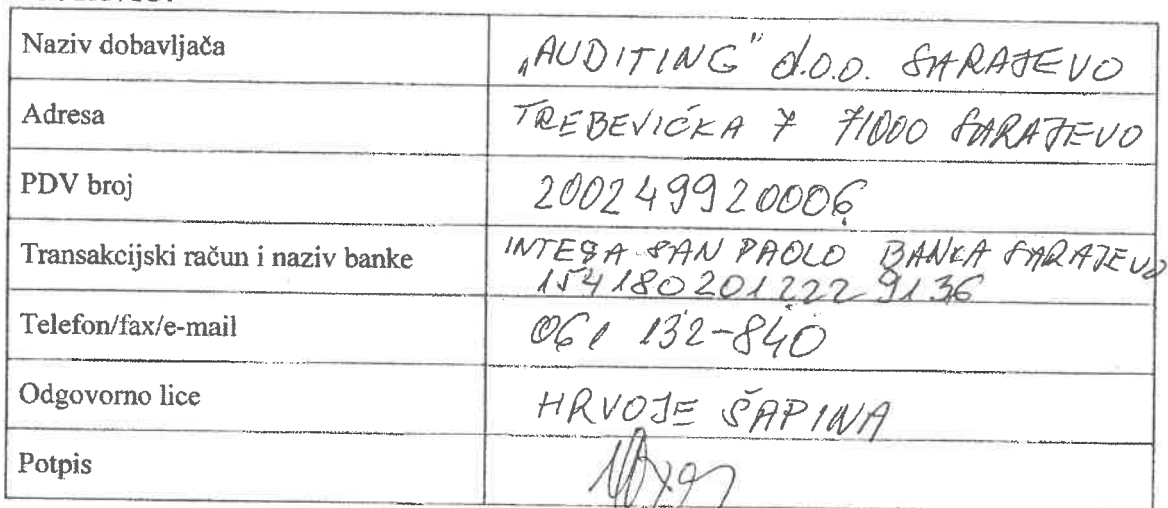 Naziv dobavljača
„AUDITING" d.o.o. SARAJEVO
Adresa
TREBEVIĆKA 7 71000 SARAJEVO
PDV broj
200249920006
Transakcijski račun i naziv banke
INTESA SAN PAOLO BANKA SARAJEVO
1541802012229136
Telefon/fax/e-mail
061 132-840
Odgovorno lice
HRVOJE ŠAPINA
Potpis